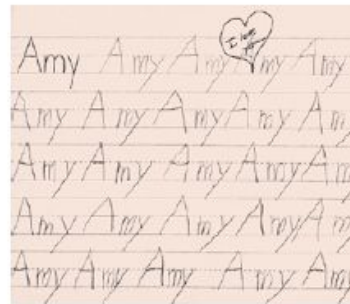 Amy Amy Amy Amy Amy
I love
Amy Amy Amy Amy Am
Amy Amy Amy Amy Am
Amy Amy Amy Amy Am
Amy Amy Amy Amy Amy